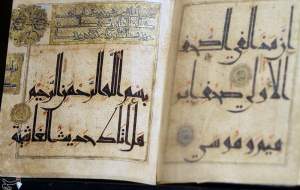 ان هذا لفي الصحف
الاولى صحف ابر
هيم وموسى
بسم الله الرحمن الرحيم
هل اتاك حديث الغاشية